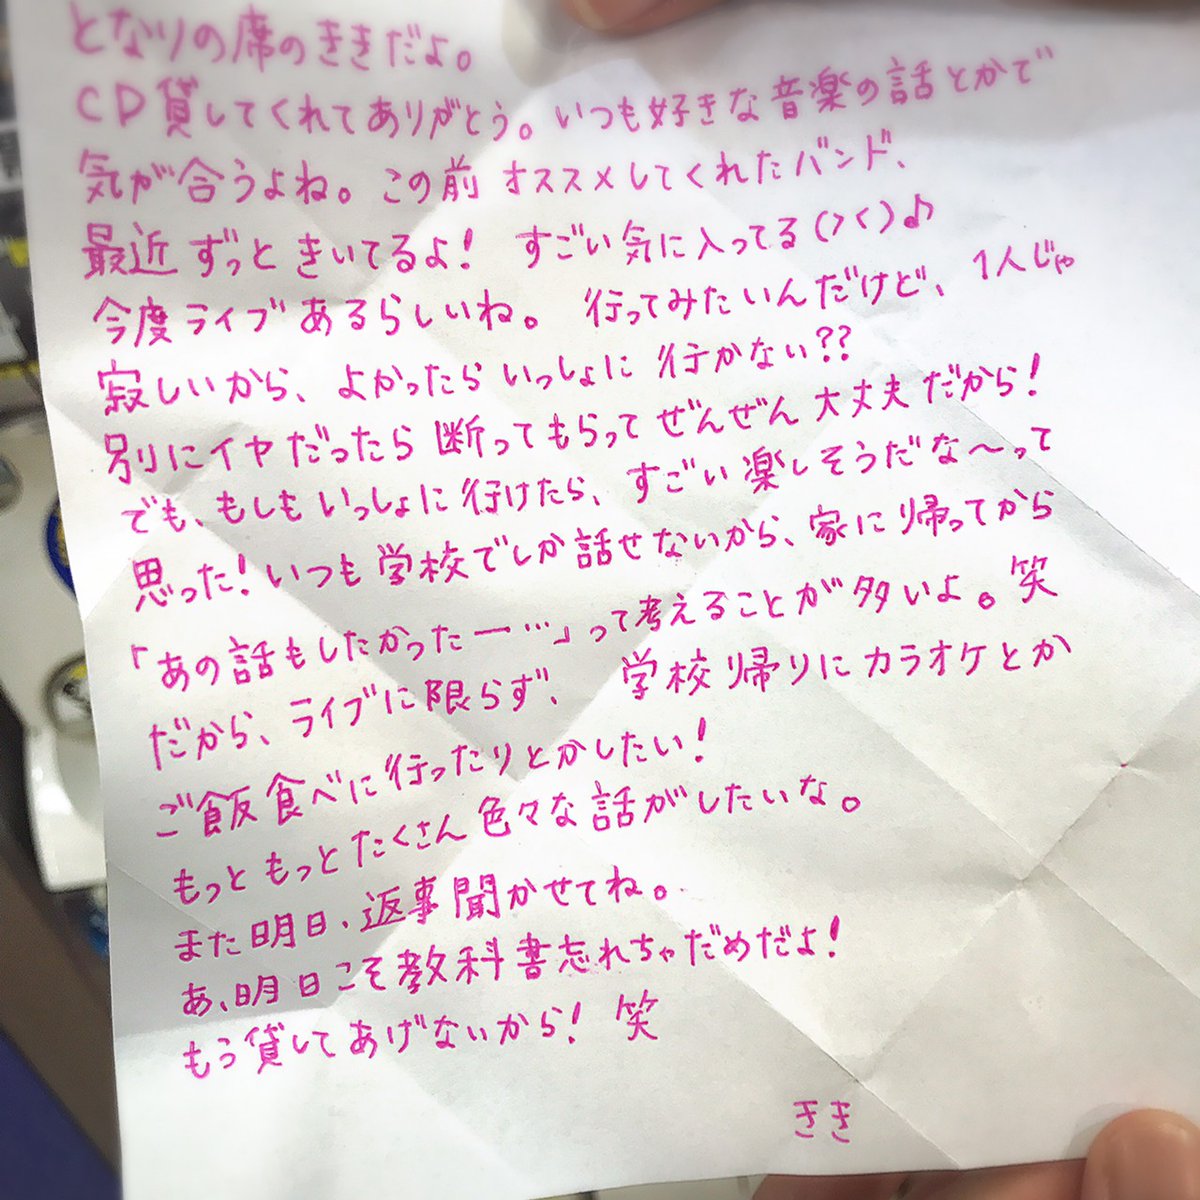 となりの席のききだよ。
CD貸してくれてありがとう。いつも好きな音楽の話とかで
気が合うよね。この前オススメしてくれたバンド、
最近ずっときいてるよ! すごい気に入ってる(><)♪
今度ライブあるらしいね。行ってみたいんだけど、1人じゃ
寂しいから、よかったらいっしょに行かない??
別にイヤだったら断ってもらってぜんぜん大丈夫だから!
でも、もしもいっしょに行けたら、すごい楽しそうだな〜って
思った!いつも学校でしか話せないから、家に帰ってから
「あの話もしたかったー…」って考えることが多いよ。笑
だから、ライブに限らず、学校帰りにカラオケとか
ご飯食べに行ったりとかしたい!
もっともっとたくさん色々な話がしたいな。
また明日、返事聞かせてね。
あ、明日こそ教科書忘れちゃだめだよ!
もう貸してあげないから!笑
きき